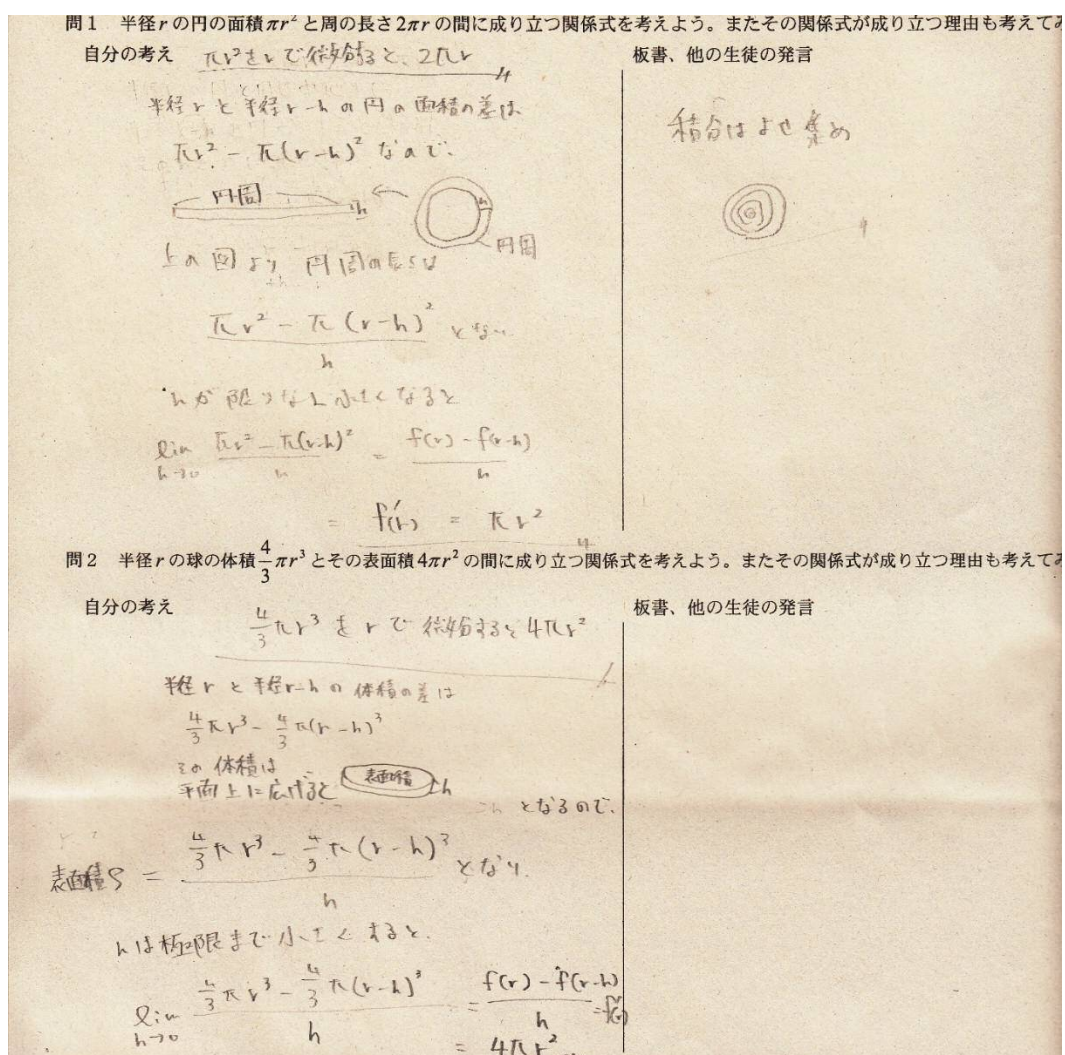 問1 半径rの円の面積πr²と周の長さ2πrの間に成り立つ関係式を考えよう。またその関係式が成り立つ理由も考えてみ
自分の考え
πr²をrで微分すると、2πr
半径rと半径r-hの円の面積の差は
πr² - π(r-h)² なので、
円周 h
h 円周
上の図より 円周の長さは
πr² - π(r-h)² / h となり
hが限りなく小さくなると
lim h→0 πr² - π(r-h)² / h = f(r) - f(r-h) / h
= f'(r) = πr²
板書、他の生徒の発言
積分はよせ集め
問2 半径rの球の体積4/3πr³とその表面積4πr²の間に成り立つ関係式を考えよう。またその関係式が成り立つ理由も考えてみ
自分の考え
4/3πr³をrで微分すると4πr²
半径rと半径r-hの体積の差は
4/3πr³ - 4/3π(r-h)³
この体積は
平面上に広げると 表面積 h となるので、
表面積S = 4/3πr³ - 4/3π(r-h)³ / h となり
hは極限まで小さくすると、
lim h→0 4/3πr³ - 4/3π(r-h)³ / h = f(r) - f(r-h) / h = f'(r)
= 4πr²
板書、他の生徒の発言